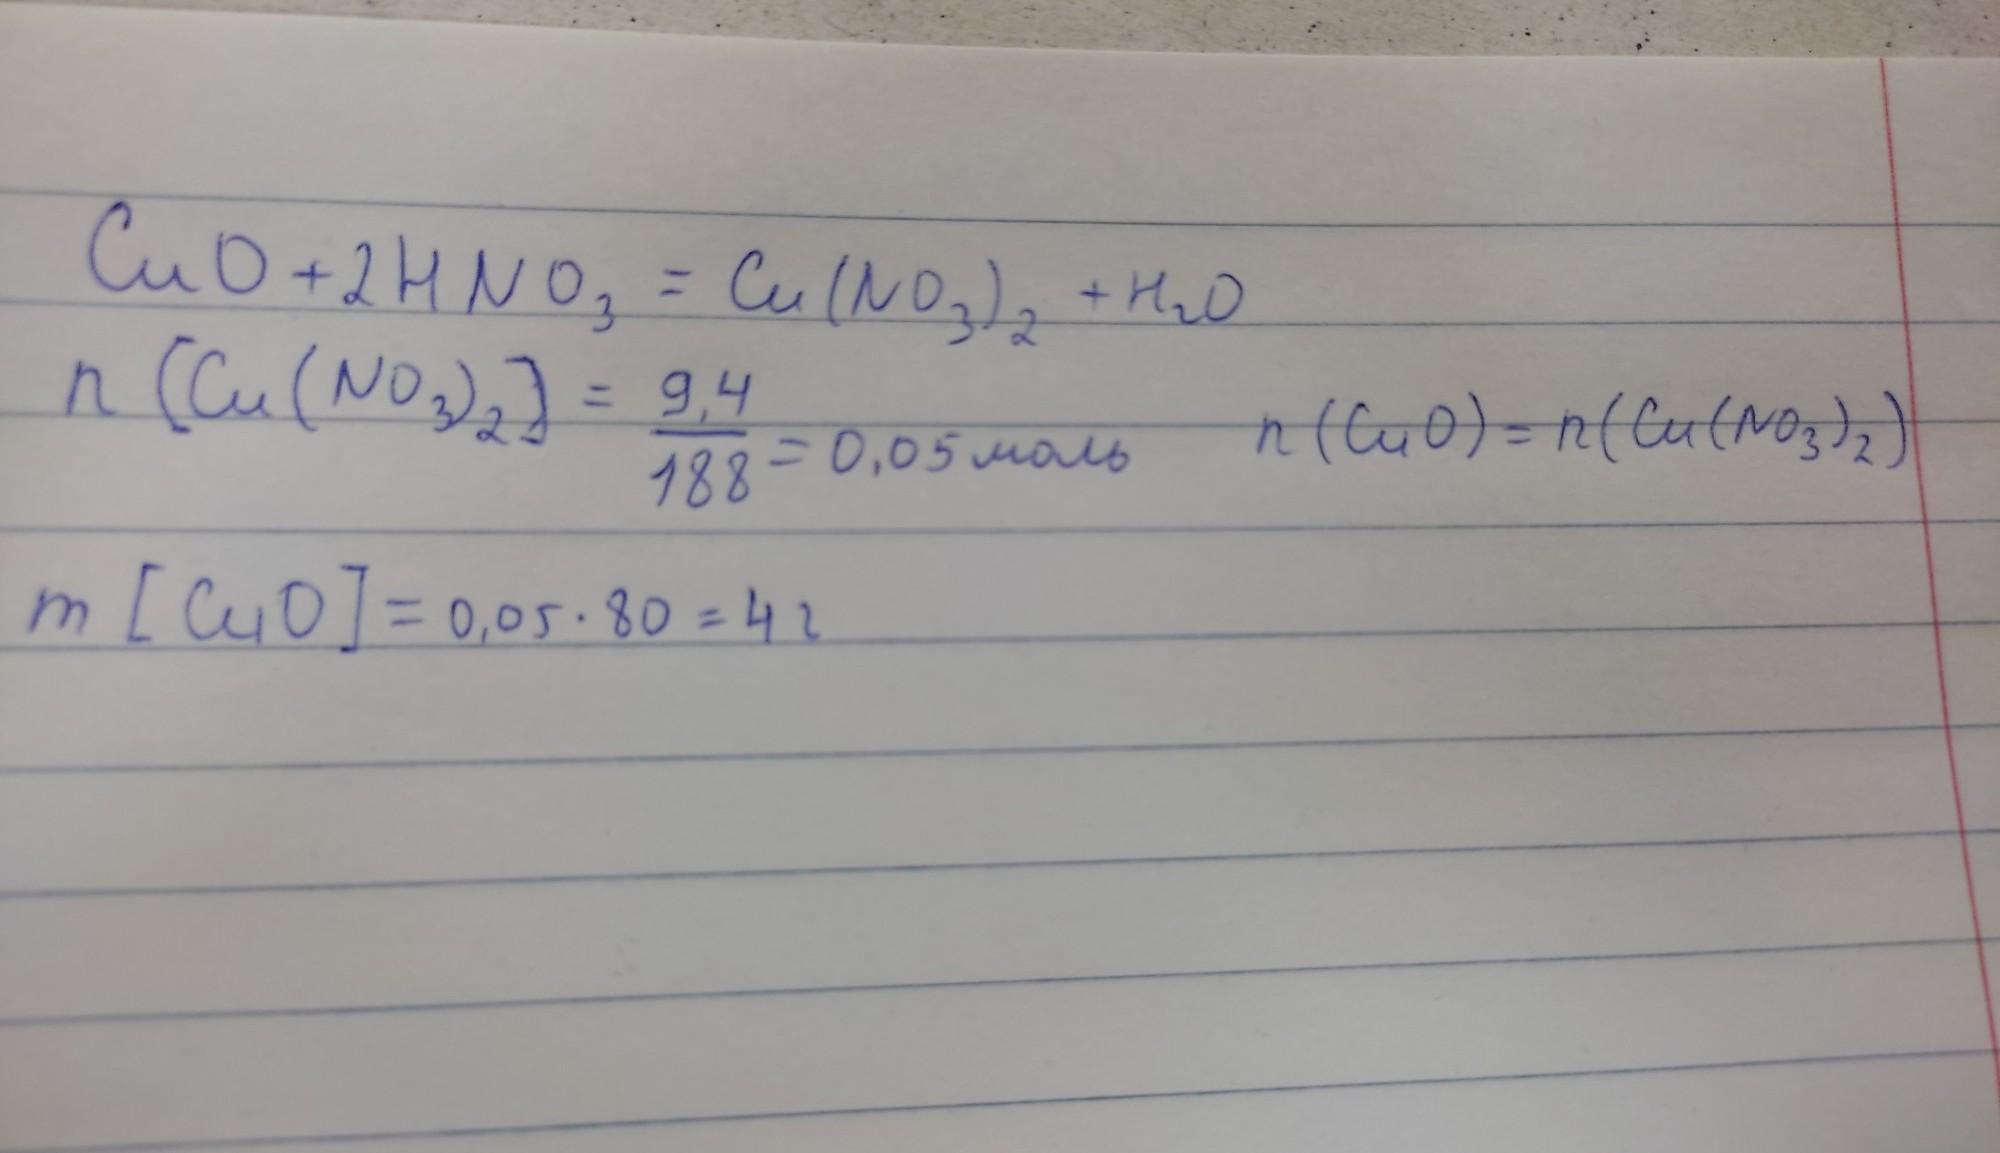 CuO + 2HNO₃ = Cu(NO₃)₂ + H₂O
n [Cu(NO₃)₂] = 9,4/188 = 0,05 моль n(CuO) = n(Cu(NO₃)₂)
m [CuO] = 0,05 · 80 = 4 г